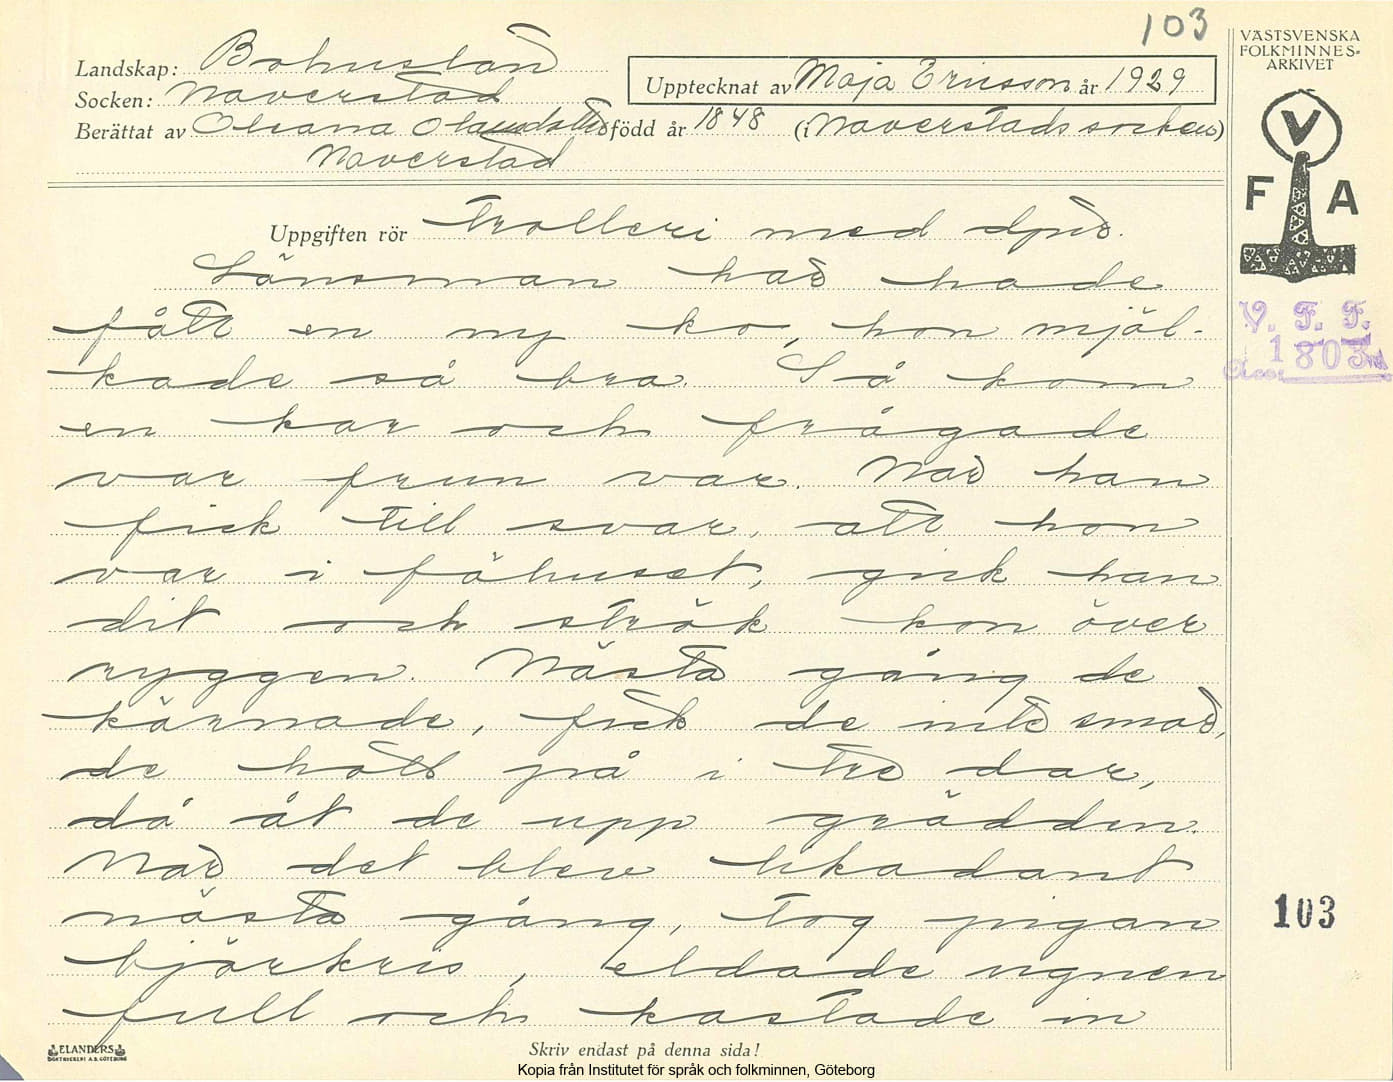 103
VÄSTSVENSKA
FOLKMINNES-
ARKIVET
Landskap: Bohuslän
Upptecknat av Maja Ericsson år 1929
Socken: Naverstad
Berättat av Oleana Olausdotter född år 1848 (i Naverstads socken)
Naverstad
V
F A
Uppgiften rör Trolleri med djur.
Länsman här hade
fått en ny ko, hon mjöl-
kade så bra. Så kom
en kar och frågade
var frun var. När han
fick till svar, att hon
var i fähuset, gick han
dit och strök kon över
ryggen. Nästa gång de
kärnade, fick de inte smör,
de höll på i tre dar,
då åt de upp grädden.
När det blev likadant
nästa gång, tog pigan
björkris, eldade ugnen
full och kastade in
V. F. F.
Acc. 1803
103
ELANDERS
BOKTRYCKERI A.B. GÖTEBORG
Skriv endast på denna sida!
Kopia från Institutet för språk och folkminnen, Göteborg